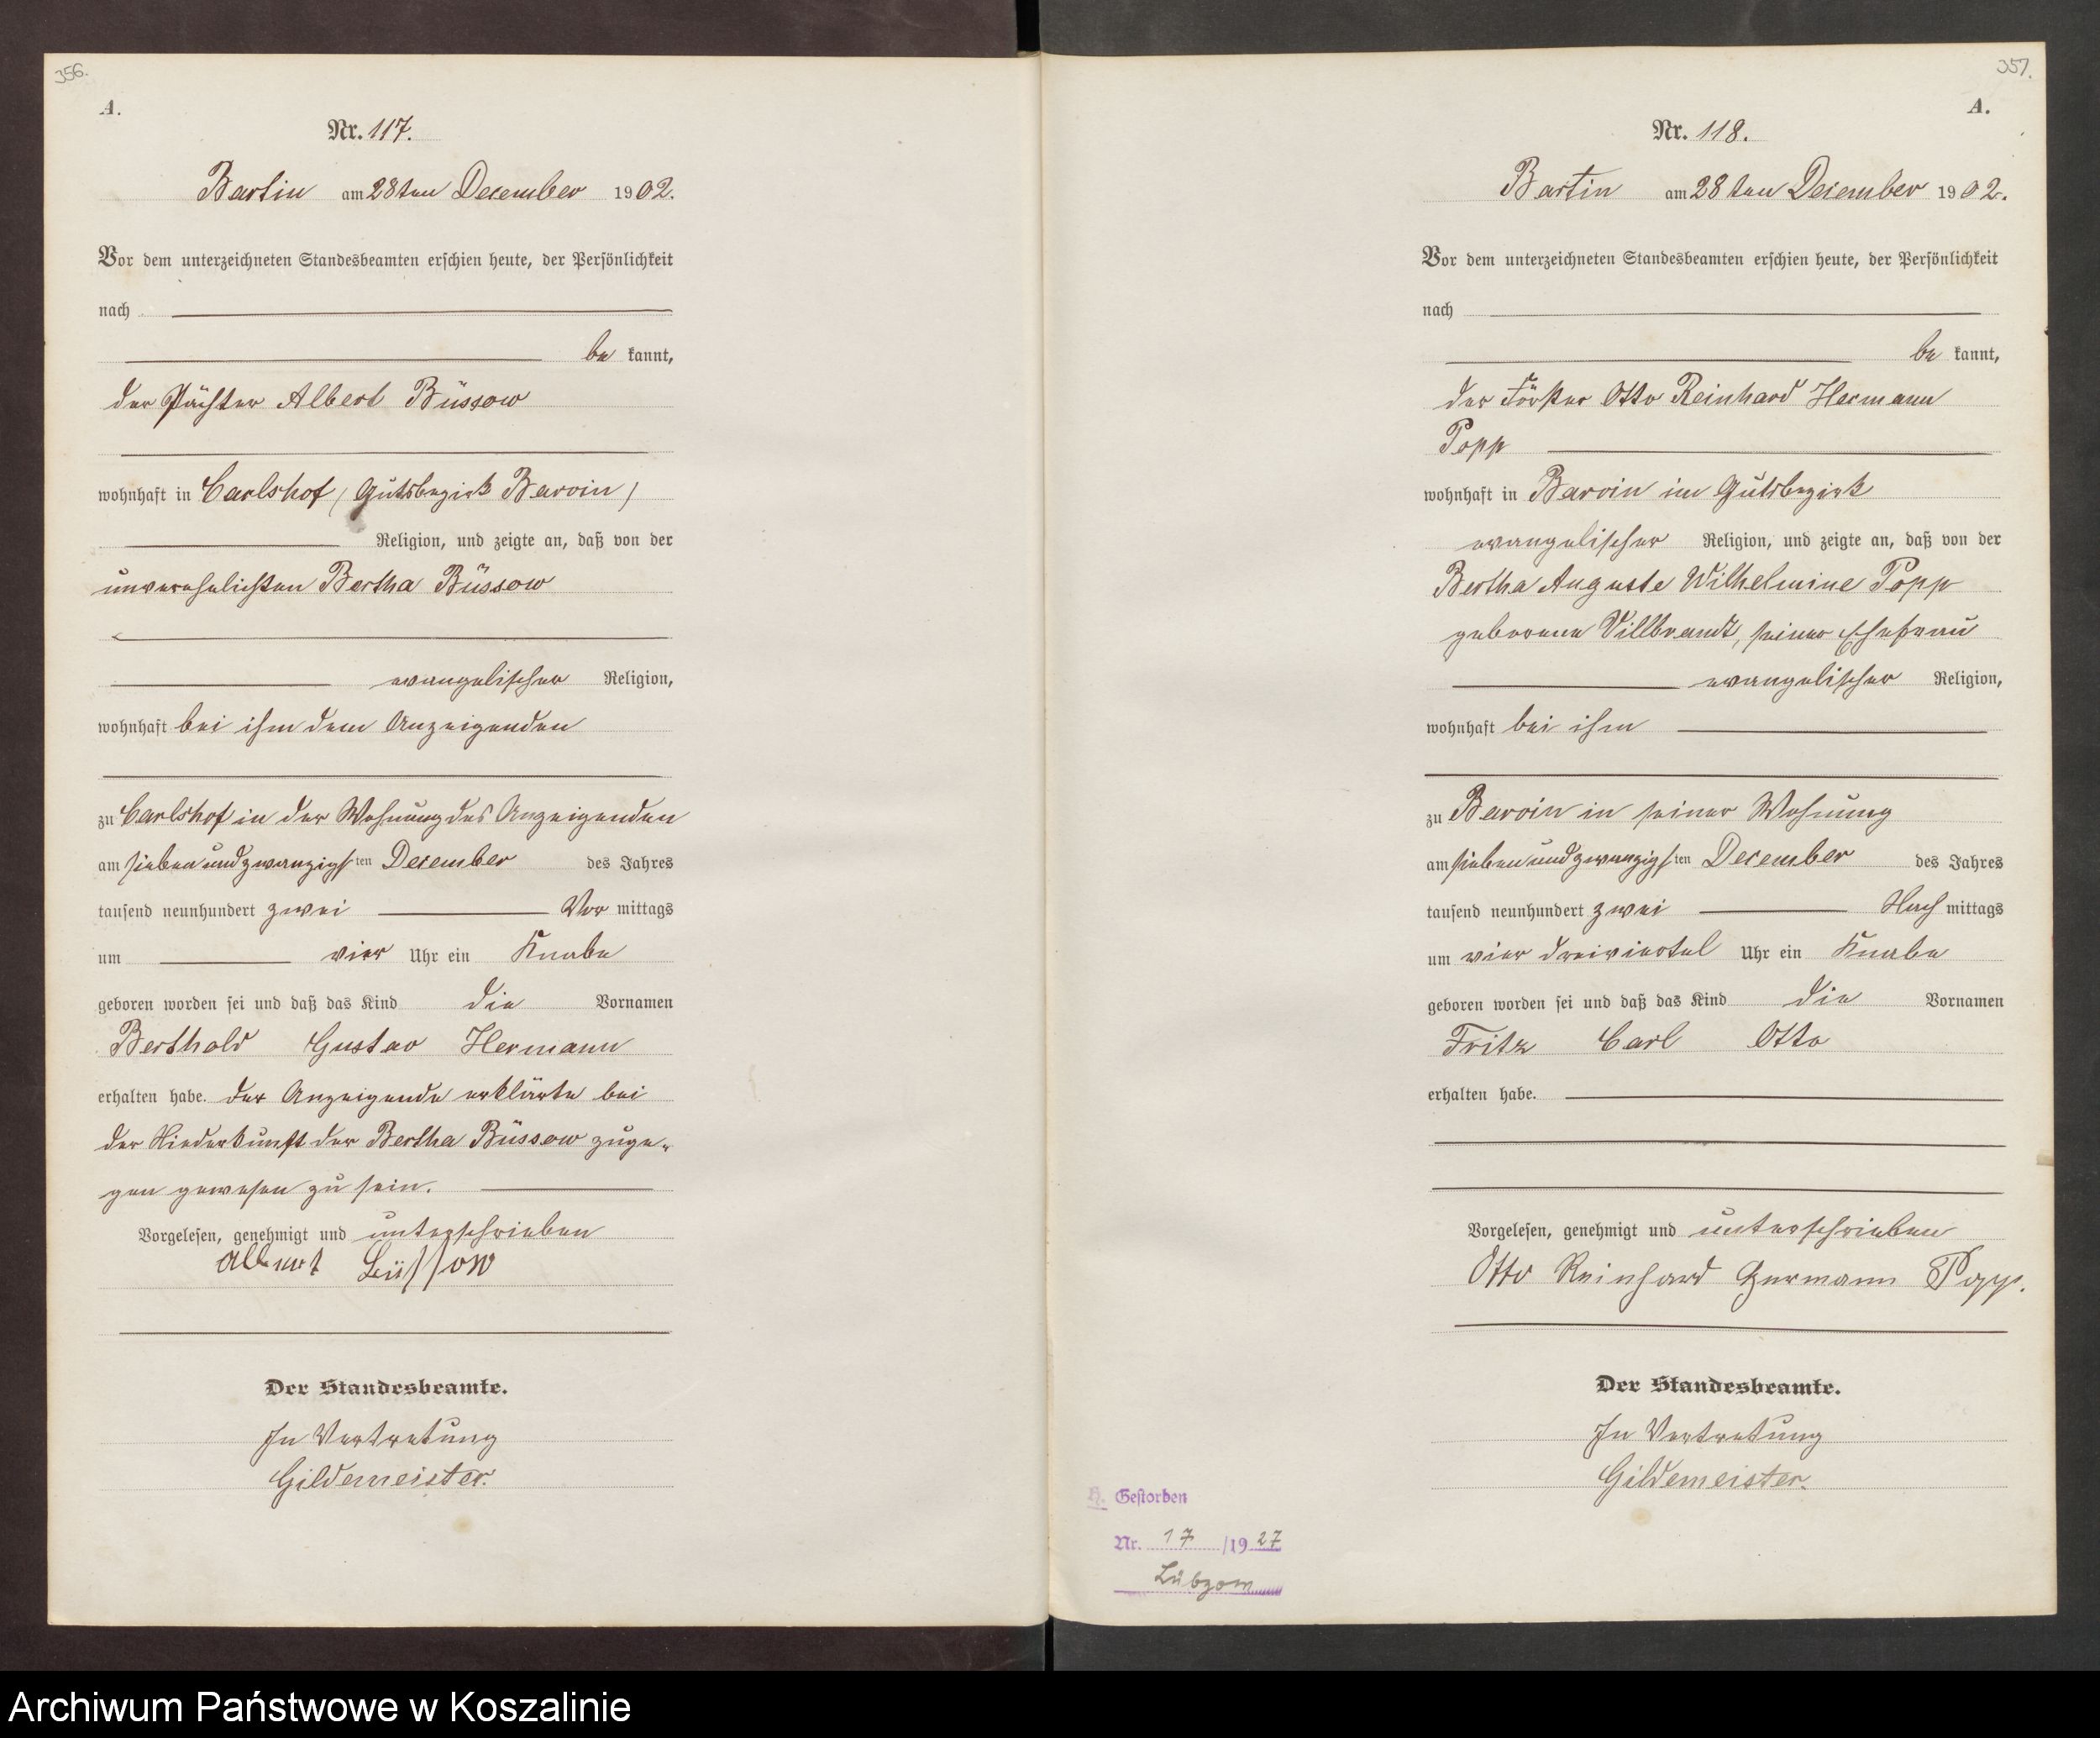 356.
A.
Nr. 117.
Bartin am 28ten December 1902.
Vor dem unterzeichneten Standesbeamten erschien heute, der Persönlichkeit
nach
be kannt,
der Pächter Albert Büssow
wohnhaft in Carlshof (Gutsbezirk Barvin)
Religion, und zeigte an, daß von der
unverehelichten Bertha Büssow
evangelischer Religion,
wohnhaft bei ihm dem Anzeigenden
zu Carlshof in der Wohnung des Anzeigenden
am siebenundzwanzigsten December des Jahres
tausend neunhundert zwei Vor mittags
um vier Uhr ein Knabe
geboren worden sei und daß das Kind die Vornamen
Berthold Gustav Hermann
erhalten habe. Der Anzeigende erklärte bei
der Niederkunft der Bertha Büssow zuge-
gen gewesen zu sein.
Vorgelesen, genehmigt und unterschrieben
Albert Büssow
Der Standesbeamte.
In Vertretung
Gildemeister.
357.
A.
Nr. 118.
Bartin am 28ten December 1902.
Vor dem unterzeichneten Standesbeamten erschien heute, der Persönlichkeit
nach
be kannt,
der Förster Otto Reinhard Hermann
Popp
wohnhaft in Barvin im Gutsbezirk
evangelischer Religion, und zeigte an, daß von der
Bertha Auguste Wilhelmine Popp
geborene Villbrandt, seiner Ehefrau
evangelischer Religion,
wohnhaft bei ihm
zu Barvin in seiner Wohnung
am siebenundzwanzigsten December des Jahres
tausend neunhundert zwei Nach mittags
um vier dreiviertel Uhr ein Knabe
geboren worden sei und daß das Kind die Vornamen
Fritz Carl Otto
erhalten habe.
Vorgelesen, genehmigt und unterschrieben
Otto Reinhard Hermann Popp.
Der Standesbeamte.
In Vertretung
Gildemeister.
H. Gestorben
Nr. 17 /1927
Lübzow
Archiwum Państwowe w Koszalinie